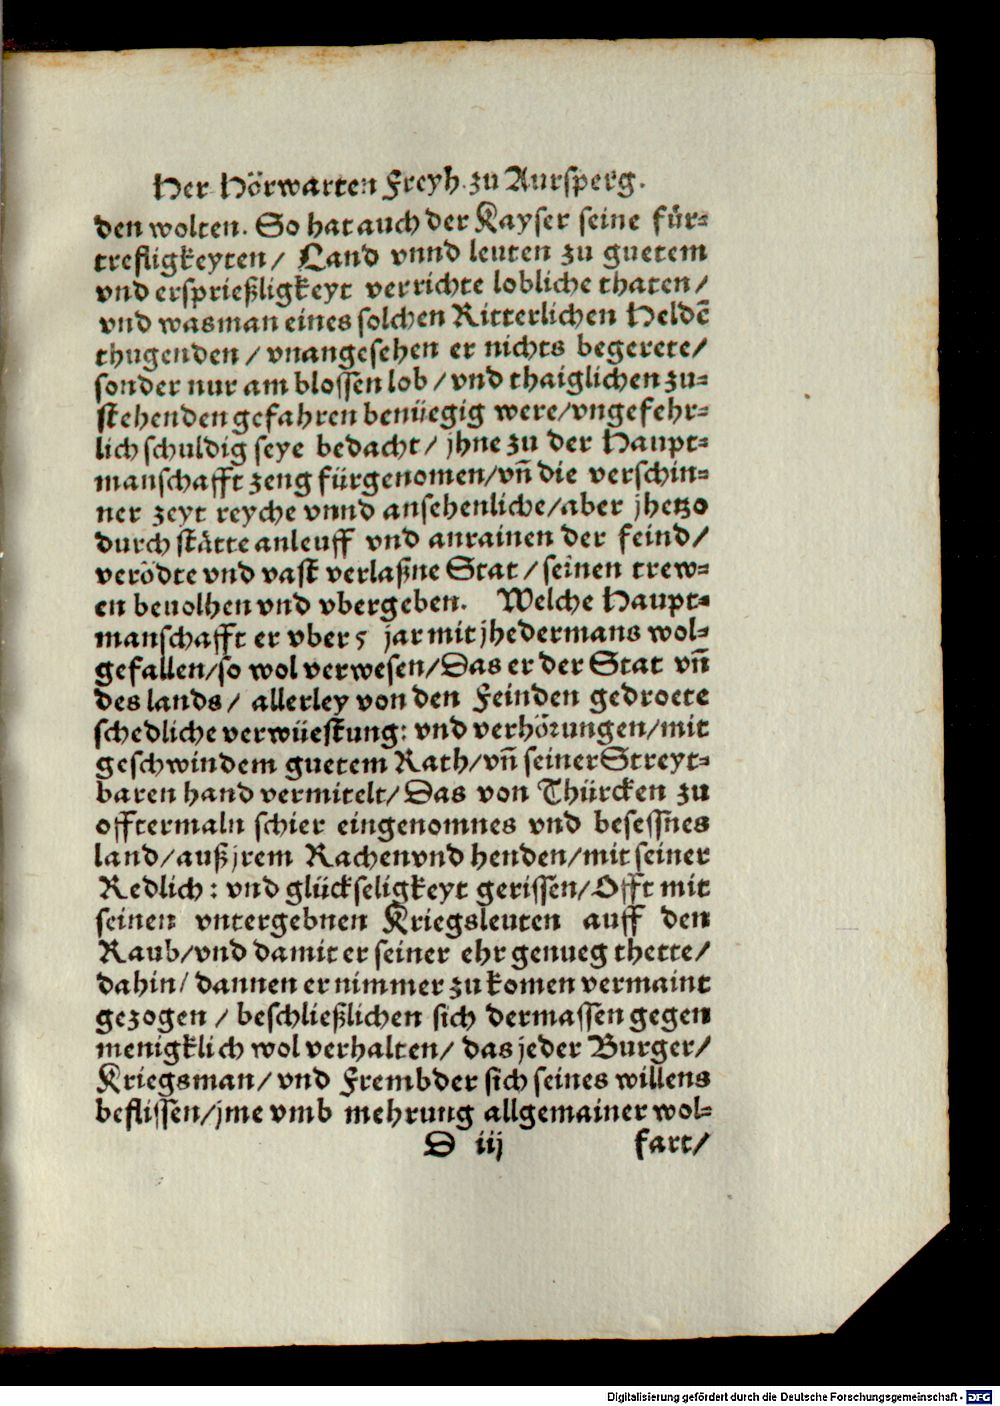 Her Hörwarten Freyh. zu Aursperg.
den wolten. So hat auch der Kayser seine für-
trefligkeyten/ Land vnnd leuten zu guetem
vnd ersprießligkeyt verrichte lobliche thaten/
vnd was man eines solchen Ritterlichen Heldē
thugenden/ vnangesehen er nichts begerete/
sonder nur am blossen lob/ vnd thaiglichen zu-
stehenden gefahren benüegig were/ vngefehr-
lich schuldig seye bedacht/ jhne zu der Haupt-
manschafft zeng fürgenomen/ vñ die verschin-
ner zeyt reyche vnnd ansehenliche/ aber jhetzo
durch stätte anleuff vnd anrainen der feind/
verödte vnd vast verlaßne Stat/ seinen trew-
en beuolhen vnd vbergeben. Welche Haupt-
manschafft er vber 5 jar mit jhedermans wol-
gefallen/ so wol verwesen/ Das er der Stat vñ
des lands/ allerley von den Feinden gedroete
schedliche verwüestung: vnd verhörungen/ mit
geschwindem guetem Rath/ vñ seiner Streyt-
baren hand vermitelt/ Das von Thürcken zu
offtermaln schier eingenomnes vnd besessnes
land/ auß jrem Rachen vnd henden/ mit seiner
Redlich: vnd glückseligkeyt gerissen/ Offt mit
seinen vntergebnen Kriegsleuten auff den
Raub/ vnd damit er seiner ehr genueg thette/
dahin/ dannen er nimmer zu komen vermaint
gezogen/ beschließlichen sich dermassen gegen
menigklich wol verhalten/ das jeder Burger/
Kriegsman/ vnd Frembder sich seines willens
beflissen/ jme vmb mehrung allgemainer wol-
D iij fart/
Digitalisierung gefördert durch die Deutsche Forschungsgemeinschaft - DFG